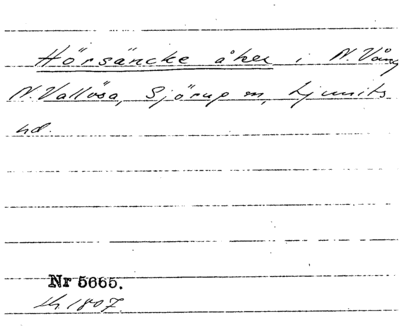 Hörsäncke åker i N. Vång
N. Vallösa, Sjörup sn, Ljunits
hd.
Nr 5665.
1807.